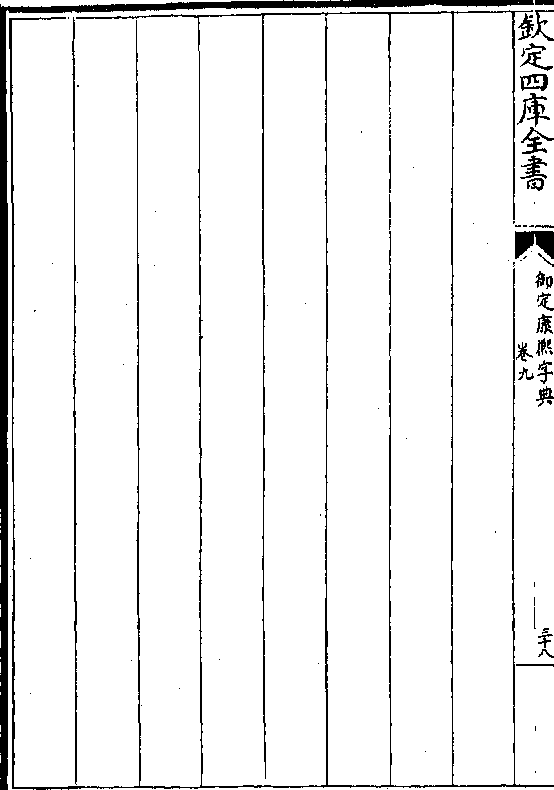 欽定四庫全書
御定康熙字典
卷九
三十八